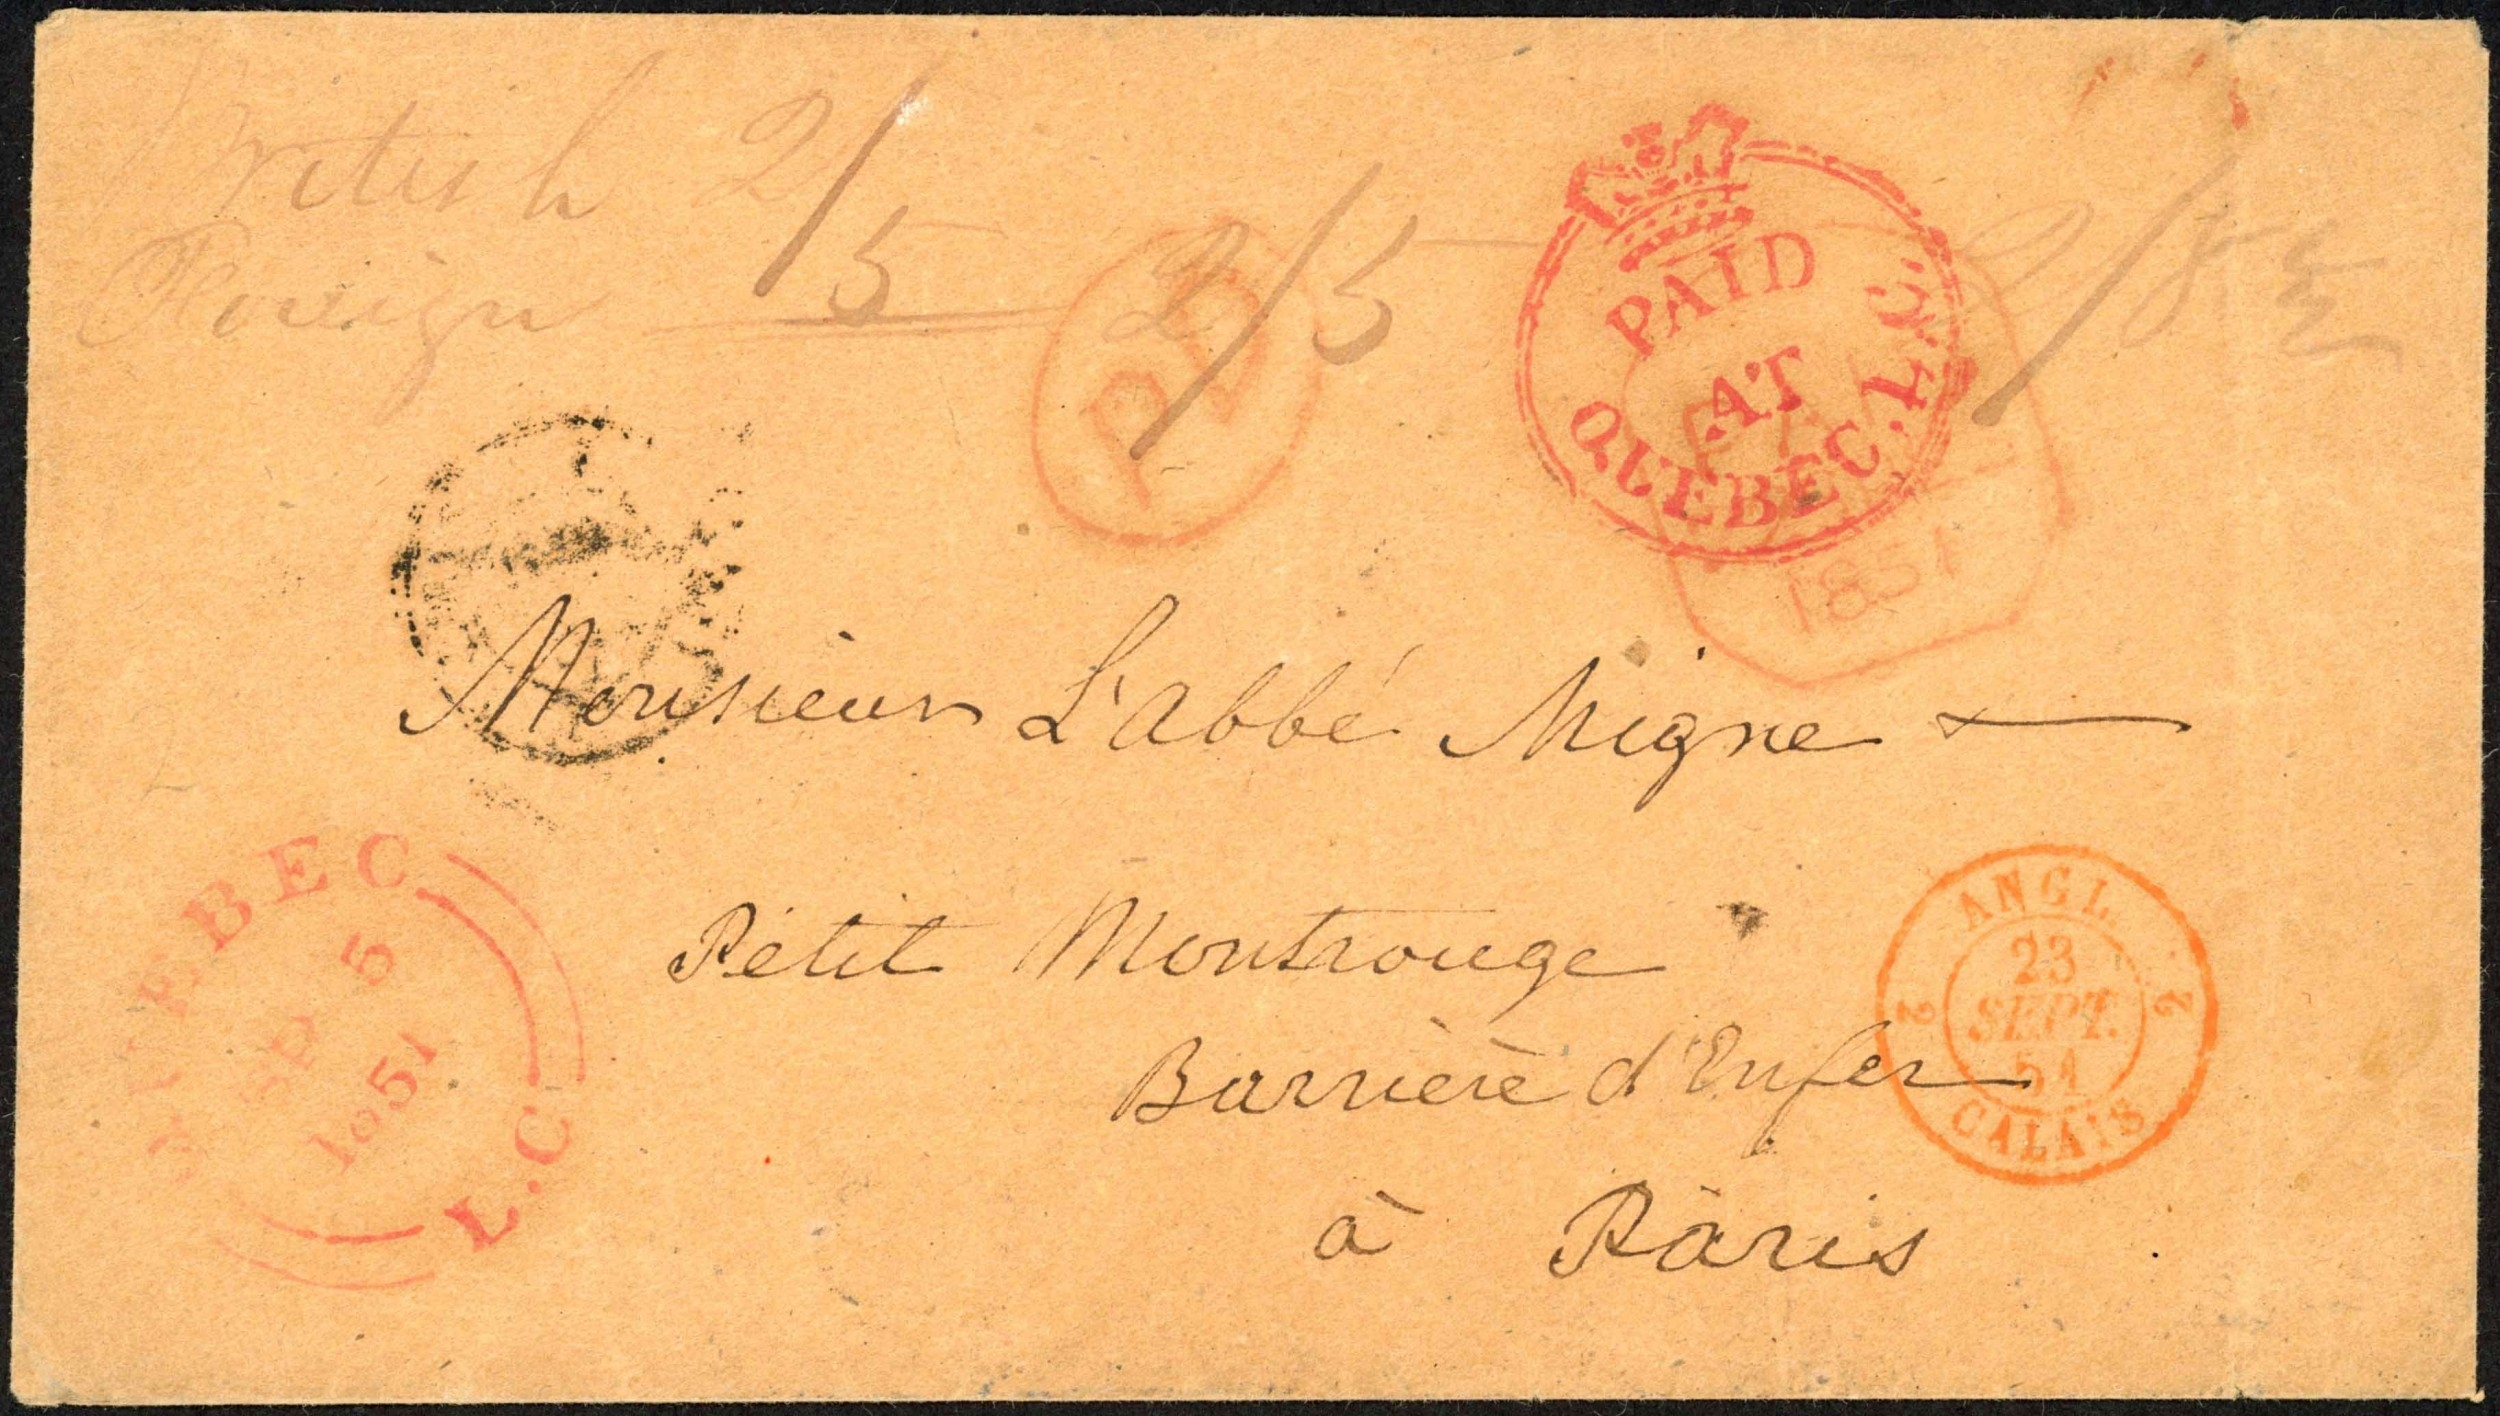 British 2/
Foreign 5 2/5 2/8½
PD
PAID
AT
QUEBEC.L.C.
1851
Monsieur L'abbé Migne
QUEBEC
SEP 5
1851
L.C.
Pétit Montrouge
Barrière d'Enfer
à Paris
ANGL.
2 23 2
SEPT.
51
CALAIS